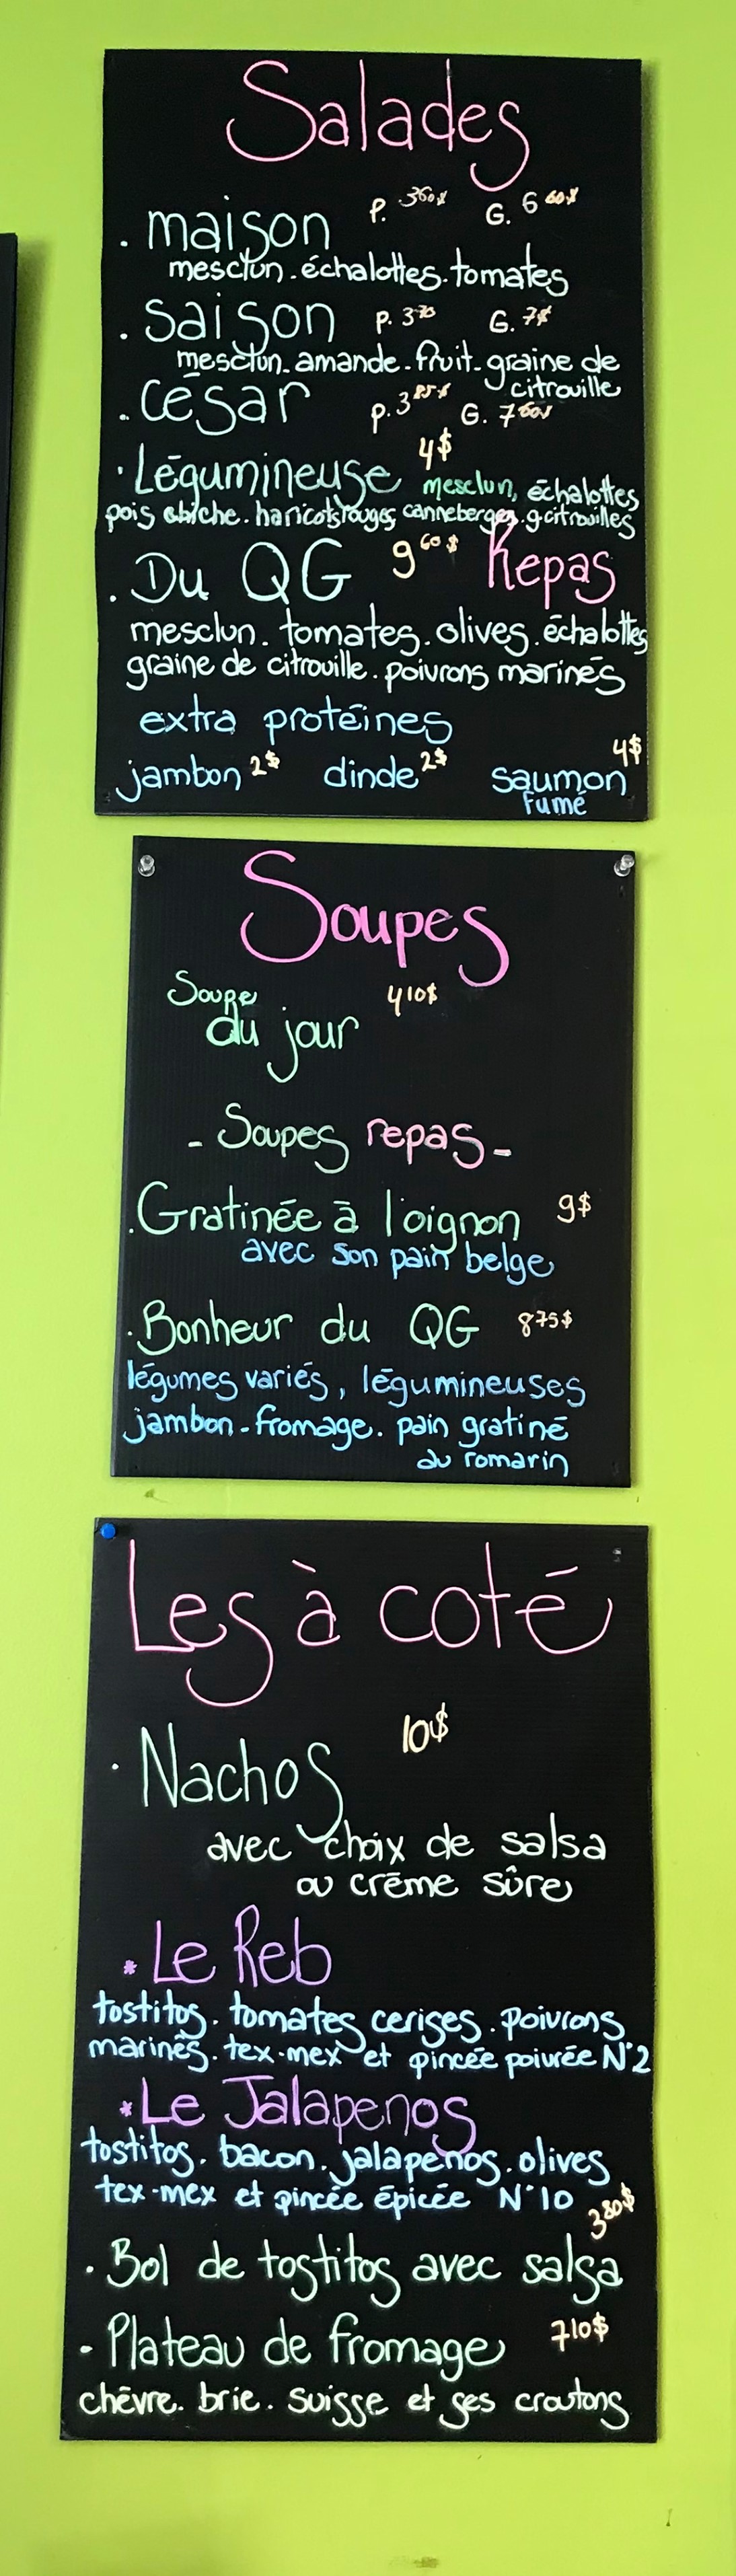 Salades
. maison P. 3 60$ G. 6 60$
mesclun. échalottes. tomates
. saison P. 3 70 G. 7$
mesclun. amande. fruit. graine de
citrouille
. César P. 3 85$ G. 7 60$
4$
. Légumineuse mesclun, échalottes
pois chiche. haricots rouges, canneberges. g. citrouilles
. Du QG 9 60$ Repas
mesclun. tomates. olives. échalottes
graine de citrouille. poivrons marinés
extra protéines
jambon 2$ dinde 2$ saumon 4$
fumé
Soupes
Soupe 4 10$
du jour
- Soupes repas -
. Gratinée à l'oignon 9$
avec son pain belge
. Bonheur du QG 8 75$
légumes variés, légumineuses
jambon - fromage. pain gratiné
au romarin
Les à coté
. Nachos 10$
avec choix de salsa
ou crème sûre
* Le Reb
tostitos. tomates cerises. poivrons
marinés. tex-mex et pincée poivrée N°2
* Le Jalapenos
tostitos. bacon. jalapenos. olives
tex-mex et pincée épicée N°10
3 80$
. Bol de tostitos avec salsa
- Plateau de fromage 7 10$
chèvre. brie. suisse et ses croutons